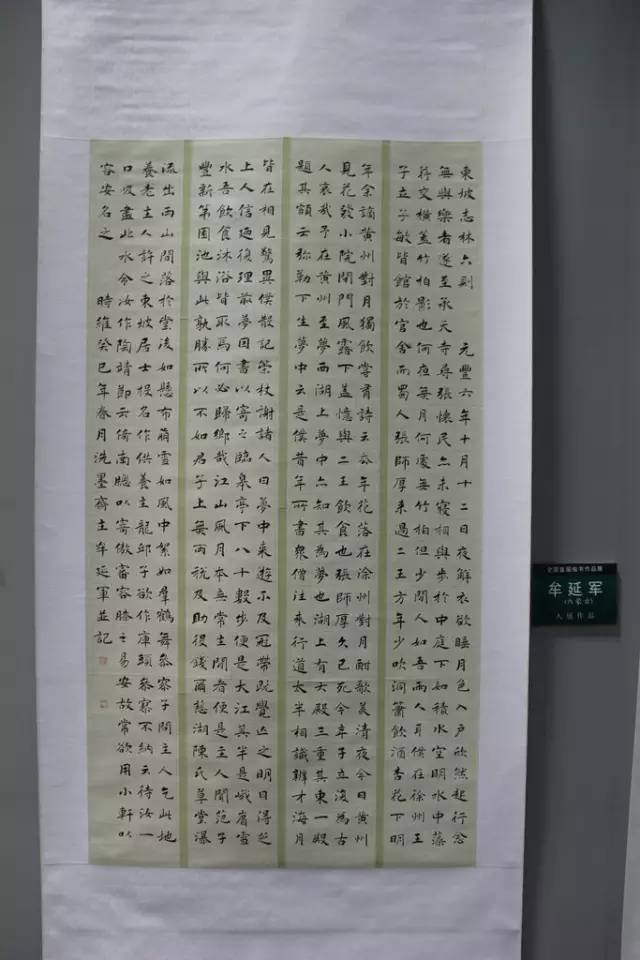 東坡志林六則 元豐六年十月十二日夜解衣欲睡月色入戶欣然起行念
無與樂者遂至承天寺尋張懷民亦未寢相與步於中庭下如積水空明水中藻
荇交橫蓋竹柏影也何夜無月何處無竹柏但少閒人如吾兩人耳僕在徐州王
子立子敏皆館於官舍而蜀人張師厚來過二王方年少吹洞簫飲酒杏花下明
年余謫黃州對月獨飲嘗有詩云去年花落在徐州對月酣歌美清夜今日黃州
見花發小院閉門風露下蓋憶與二王飲食也張師厚久已死今年子立復為古
人哀哉予在黃州至夢西湖上夢中亦知其為夢也湖上有大殿三重其東一殿
題其額云彌勒下生夢中云是僕昔年所書眾僧往來行道太半相識辨才海月
皆在相見驚異僕散記策杖謝諸人曰夢中來遊不及冠帶既覺忘之明日得芝
上人信迺復理前夢因書以寄之臨皋亭下八十數步便是大江其半是峨眉雪
水吾飲食沐浴皆取焉何必歸鄉哉江山風月本無常主閒者便是主人聞范子
豐新第園池與此孰勝所以不如君子上無兩稅及助役錢爾慈湖陳氏草堂瀑
流出兩山間落於堂後如懸布崩雪如風中絮如羣鶴舞參寥子問主人乞此地
養老主人許之東坡居士投名作供養主龍邱子欲作庫頭參寥不納云待汝一
口吸盡此水令汝作陶靖節云倚南牕以寄傲審容膝之易安故常欲用小軒以
容安名之 時維癸巳年春月洗墨齋主牟延軍並記
全国首届楷书作品展
牟延军
(内蒙古)
入展作品